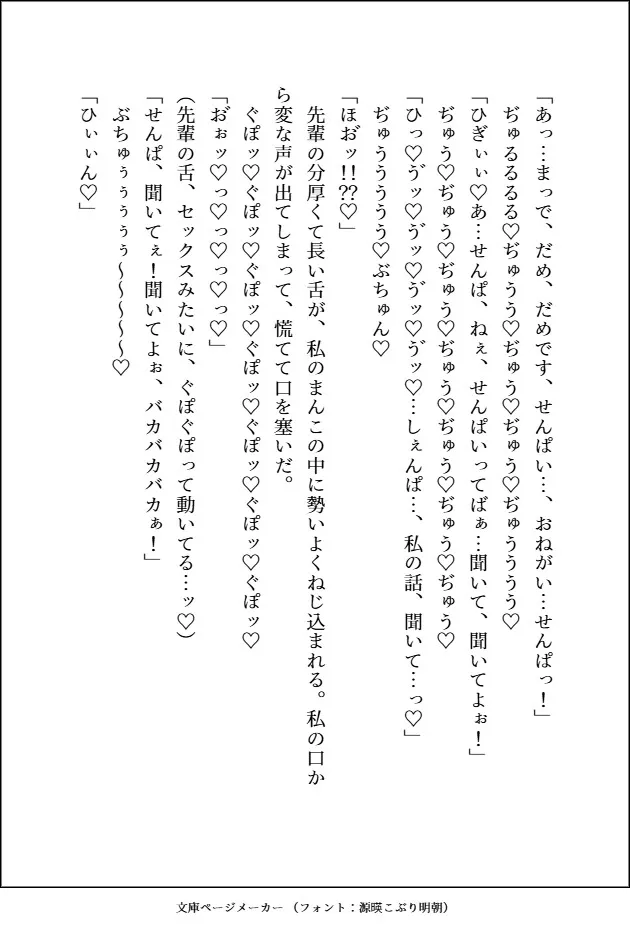 「あっ…まっで、だめ、だめです、せんぱい…、おねがい…せんぱっ！」
ぢゅるるるる♡ぢゅうう♡ぢゅう♡ぢゅう♡ぢゅうううう♡
「ひぎぃぃ♡あ…せんぱ、ねぇ、せんぱいってばぁ…聞いて、聞いてよぉ！」
ぢゅう♡ぢゅう♡ぢゅう♡ぢゅう♡ぢゅう♡ぢゅう♡ぢゅう♡
「ひっ♡ゔッ♡ゔッ♡ゔッ♡ゔッ♡…しぇんぱ…、私の話、聞いて…っ♡」
ぢゅううううう♡ぶちゅん♡
「ほお゙ッ!!??♡」
先輩の分厚くて長い舌が、私のまんこの中に勢いよくねじ込まれる。私の口か
ら変な声が出てしまって、慌てて口を塞いだ。
ぐぽッ♡ぐぽッ♡ぐぽッ♡ぐぽッ♡ぐぽッ♡ぐぽッ♡ぐぽッ♡
「お゙ぉッ♡っ♡っ♡っ♡っ♡」
(先輩の舌、セックスみたいに、ぐぽぐぽって動いてる…ッ♡)
「せんぱ、聞いてぇ！聞いてよぉ、バカバカバカぁ！」
ぶちゅぅぅぅぅぅ～～～～～♡
「ひぃぃん♡」
文庫ページメーカー（フォント：源暎こぶり明朝）